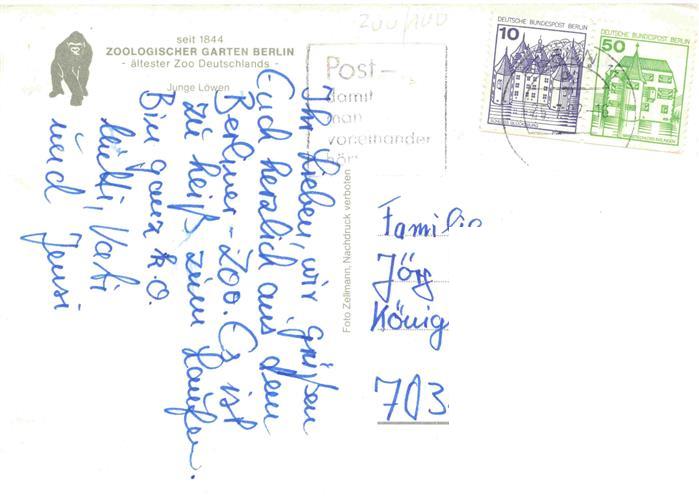 200/100
seit 1844
ZOOLOGISCHER GARTEN BERLIN
- ältester Zoo Deutschlands -
Junge Löwen
Ihr Lieben, wir grüßen
Euch herzlich aus dem
Berliner-Zoo. Es ist
zu heiß zum Laufen.
Bin ganz k.o.
Mutti, Vati
und Jensi
Foto Zellmann, Nachdruck verboten
Post-
damit
man
voneinander
hört
10
DEUTSCHE BUNDESPOST BERLIN
50
DEUTSCHE BUNDESPOST BERLIN
Familie
Jörg
König
703